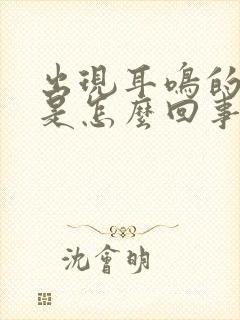 出現耳鳴的
是怎麼回事
沈會明